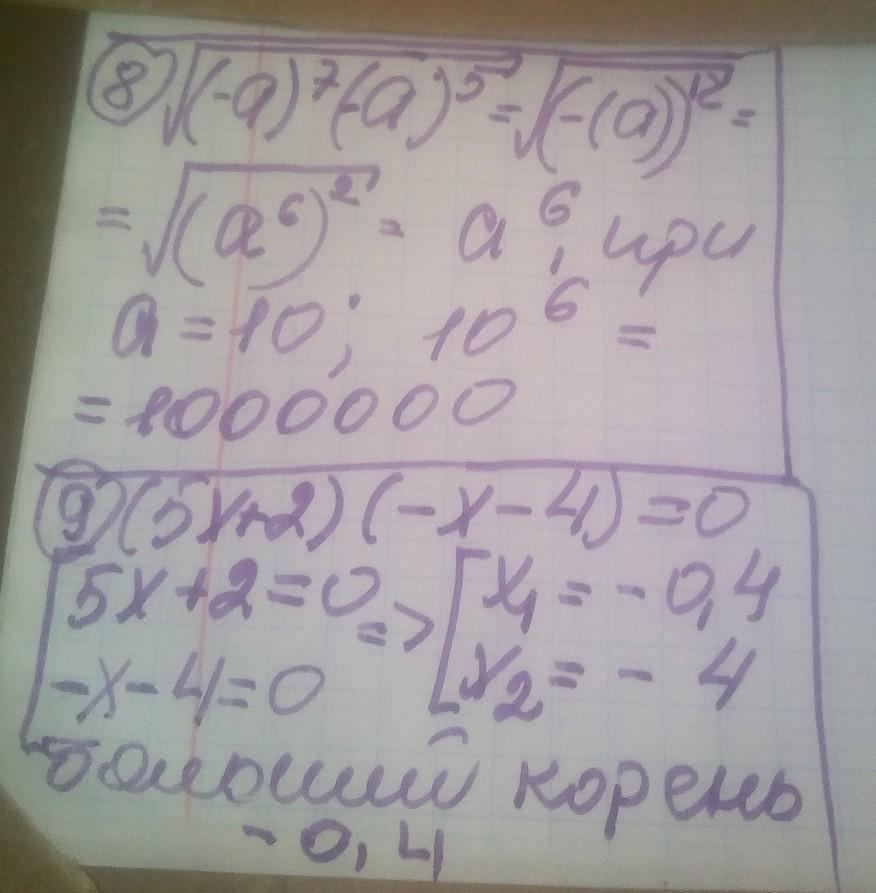 ⑧ √((-a)⁷(-a)⁵) = √((-(a))¹²) =
= √((a⁶)²) = a⁶, при
a = 10; 10⁶ =
= 1000000
⑨ (5x+2)(-x-4)=0
[5x+2=0 => [x₁ = -0,4
-x-4=0 x₂ = - 4
больший корень
-0,4